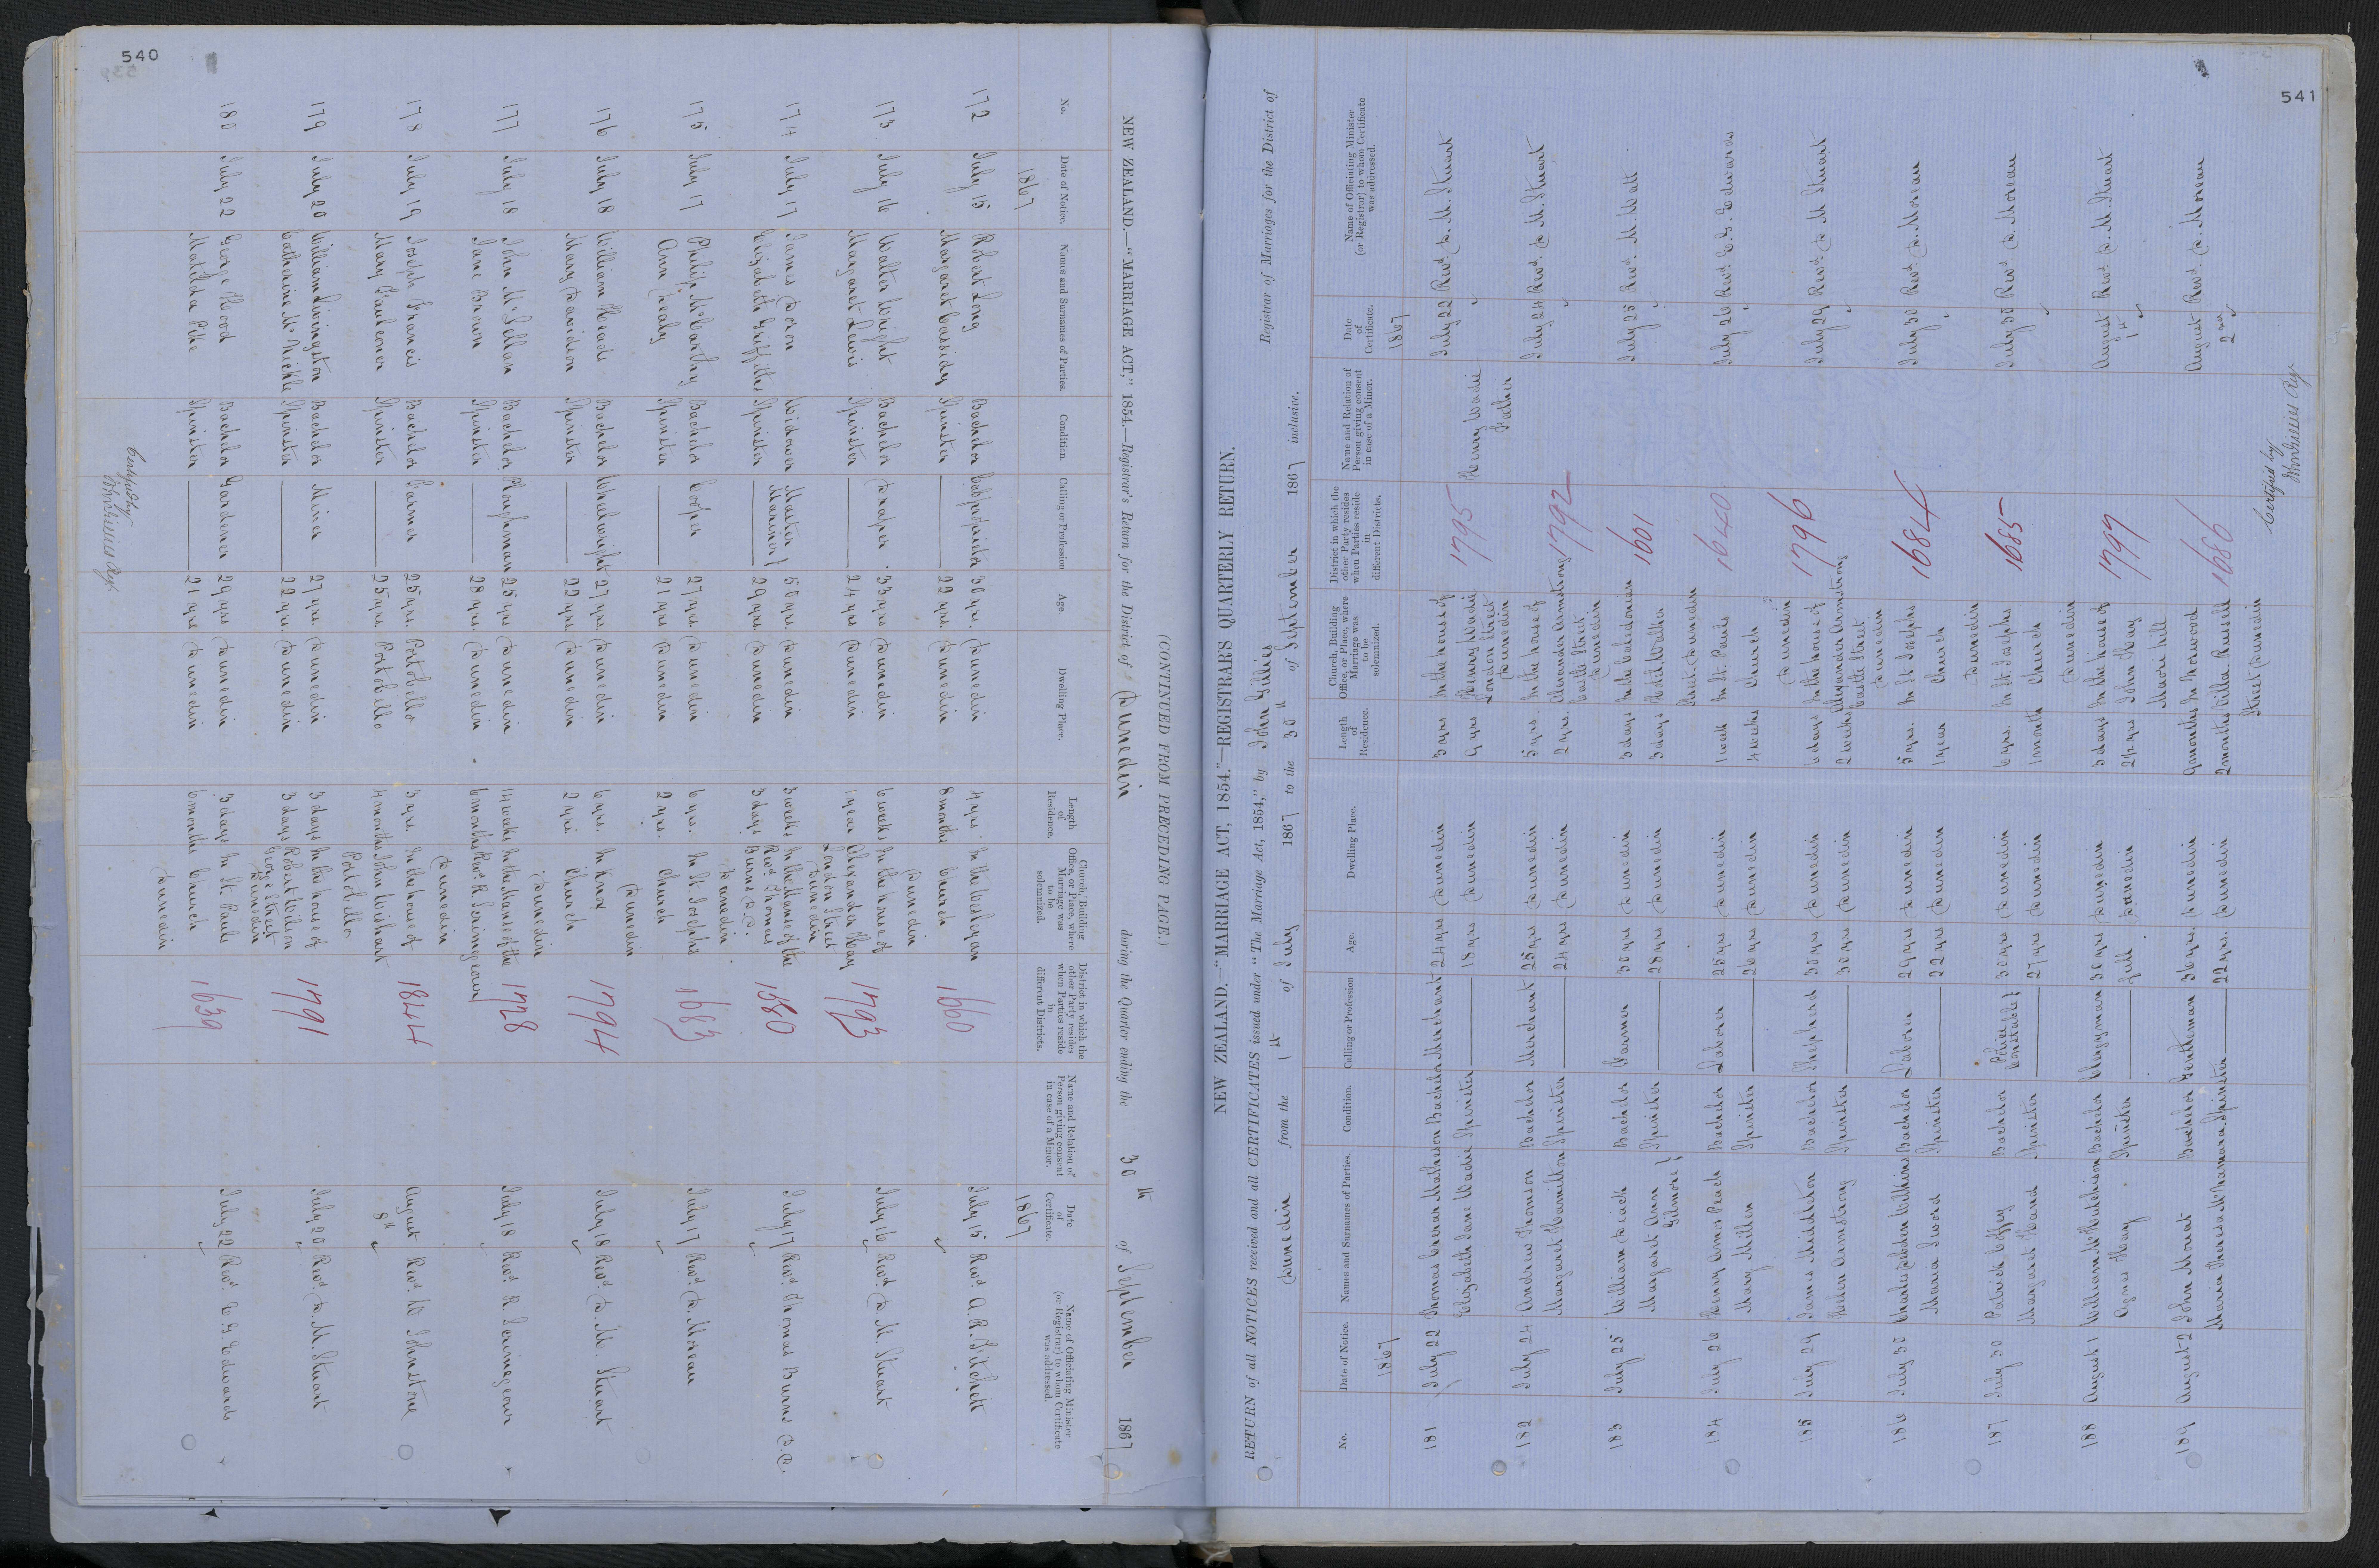 540
(CONTINUED FROM PRECEDING PAGE.)
NEW ZEALAND.—"MARRIAGE ACT," 1854.—Registrar's Return for the District of Dunedin during the Quarter ending the 30th of September 1867
No. Date of Notice. Names and Surnames of Parties. Condition. Calling or Profession Age. Dwelling Place. Length of Residence. Church, Building Office, or Place, where Marriage was to be solemnized. District in which the other Party resides when Parties reside in different Districts. Name and Relation of Person giving consent in case of a Minor. Date of Certificate. Name of Officiating Minister (or Registrar) to whom Certificate was addressed.
1867 1867
172 July 15 Robert Long Bachelor Cabproprietor 30 yrs. Dunedin 4 yrs. In the Wesleyan 1660 July 15 Revd. A. R. Fitchett
Margaret Cassidy Spinster 22 yrs. Dunedin 8 months Church
Dunedin
173 July 16 Walter Wright Bachelor Draper 33 yrs Dunedin 6 weeks In the house of 1793 July 16 Revd. D. M. Stuart
Margaret Lewis Spinster 24 yrs Dunedin 1 year Alexander Hay
London Street
Dunedin
174 July 17 James Doron Widower Master Mariner 50 yrs. Dunedin 3 weeks In the Manse of the 1580 July 17 Revd. Thomas Burns D.D.
Elizabeth Griffiths Spinster 29 yrs. Dunedin 3 days Revd. Thomas
Burns D.D.
Dunedin
175 July 17 Philip McCarthy Bachelor Cooper 27 yrs. Dunedin 6 yrs. In St. Josephs 1683 July 17 Revd. D. Moreau
Ann Healy Spinster 21 yrs Dunedin 2 yrs. Church
Dunedin
176 July 18 William Heads Bachelor Wheelwright 27 yrs. Dunedin 6 yrs. In Knox 1794 July 18 Revd. D. M. Stuart
Mary Davidson Spinster 22 yrs. Dunedin 2 yrs. Church
Dunedin
177 July 18 John McLellan Bachelor Ploughman 25 yrs Dunedin 14 weeks In the Manse of the 1728 July 18 Revd. R. Scrimgeour
Jane Brown Spinster 28 yrs. Dunedin 6 months Revd. R. Scrimgeour
Dunedin
178 July 19 Joseph Francis Bachelor Farmer 25 yrs. Portobello 3 yrs. In the house of 1844 August 8th Revd. W Johnstone
Mary Faulconer Spinster 25 yrs. Portobello 4 months John Wishart
Portobello
179 July 20 William Livingston Bachelor Miner 27 yrs. Dunedin 3 days In the house of 1791 July 20 Revd. D. M. Stuart
Catherine McNickle Spinster 22 yrs. Dunedin 3 days Robert Wilson
George Street
Dunedin
180 July 22 George Hood Bachelor Gardener 29 yrs Dunedin 3 days In St. Pauls 1639 July 22 Revd. E. G. Edwards
Matilda Pike Spinster 21 yrs Dunedin 6 months Church
Dunedin
Certified by
John Gillies Regr.
541
NEW ZEALAND.—"MARRIAGE ACT, 1854."—REGISTRAR'S QUARTERLY RETURN.
RETURN of all NOTICES received and all CERTIFICATES issued under "The Marriage Act, 1854," by John Gillies Registrar of Marriages for the District of
Dunedin from the 1st of July 1867 to the 30th of September 1867 inclusive.
No. Date of Notice. Names and Surnames of Parties. Condition. Calling or Profession Age. Dwelling Place. Length of Residence. Church, Building Office, or Place, where Marriage was to be solemnized. District in which the other Party resides when Parties reside in different Districts. Name and Relation of Person giving consent in case of a Minor. Date of Certificate. Name of Officiating Minister (or Registrar) to whom Certificate was addressed.
1867 1867
181 July 22 Thomas Cesar Matheson Bachelor Merchant 24 yrs Dunedin 3 yrs In the house of 1795 Henry Wadie July 22 Revd. D. M. Stuart
Elizabeth Jane Wadie Spinster 18 yrs Dunedin 9 yrs Henry Wadie Father
London Street
Dunedin
182 July 24 Andrew Thomson Bachelor Merchant 25 yrs Dunedin 5 yrs. In the house of 1792 July 24 Revd. D. M. Stuart
Margaret Hamilton Spinster 24 yrs Dunedin 2 yrs. Alexander Armstrong
Castle Street
Dunedin
183 July 25 William Diack Bachelor Farmer 30 yrs Dunedin 3 days In the Caledonian 1601 July 25 Revd. M Watt
Margaret Ann Gilmore Spinster 28 yrs Dunedin 3 days Hotel Walker
Street Dunedin
184 July 26 Henry Amos Peach Bachelor Laborer 25 yrs Dunedin 1 week In St. Pauls 1640 July 26 Revd. E. G. Edwards
Mary Millen Spinster 26 yrs Dunedin 4 weeks Church
Dunedin
185 July 29 James Middleton Bachelor Shepherd 30 yrs Dunedin 6 days In the house of 1796 July 29 Revd. D M Stuart
Helen Armstrong Spinster 30 yrs Dunedin 2 weeks Alexander Armstrong
Castle Street
Dunedin
186 July 30 Charles Wilkins Bachelor Laborer 29 yrs Dunedin 5 yrs. In St Josephs 1684 July 30 Revd D. Moreau
Maria Sword Spinster 22 yrs Dunedin 1 year Church
Dunedin
187 July 30 Patrick Coffey Bachelor Police Constable 30 yrs Dunedin 6 yrs. In St. Josephs 1685 July 30 Revd. D. Moreau
Margaret Hand Spinster 27 yrs Dunedin 1 month Church
Dunedin
188 August 1 William McHutchison Bachelor Clergyman 30 yrs Dunedin 3 days In the house of 1799 August 1st Revd. D. M. Stuart
Agnes Hay Spinster full Dunedin 2½ yrs John Hay
Maori hill
189 August 2 John Mouat Bachelor Gentleman 36 yrs. Dunedin 9 months In Norwood 1686 August 2nd Revd. D. Moreau
Maria Theresa McNamara Spinster 22 yrs. Dunedin 2 months Villa Russell
Street Dunedin
Certified by
John Gillies Regr